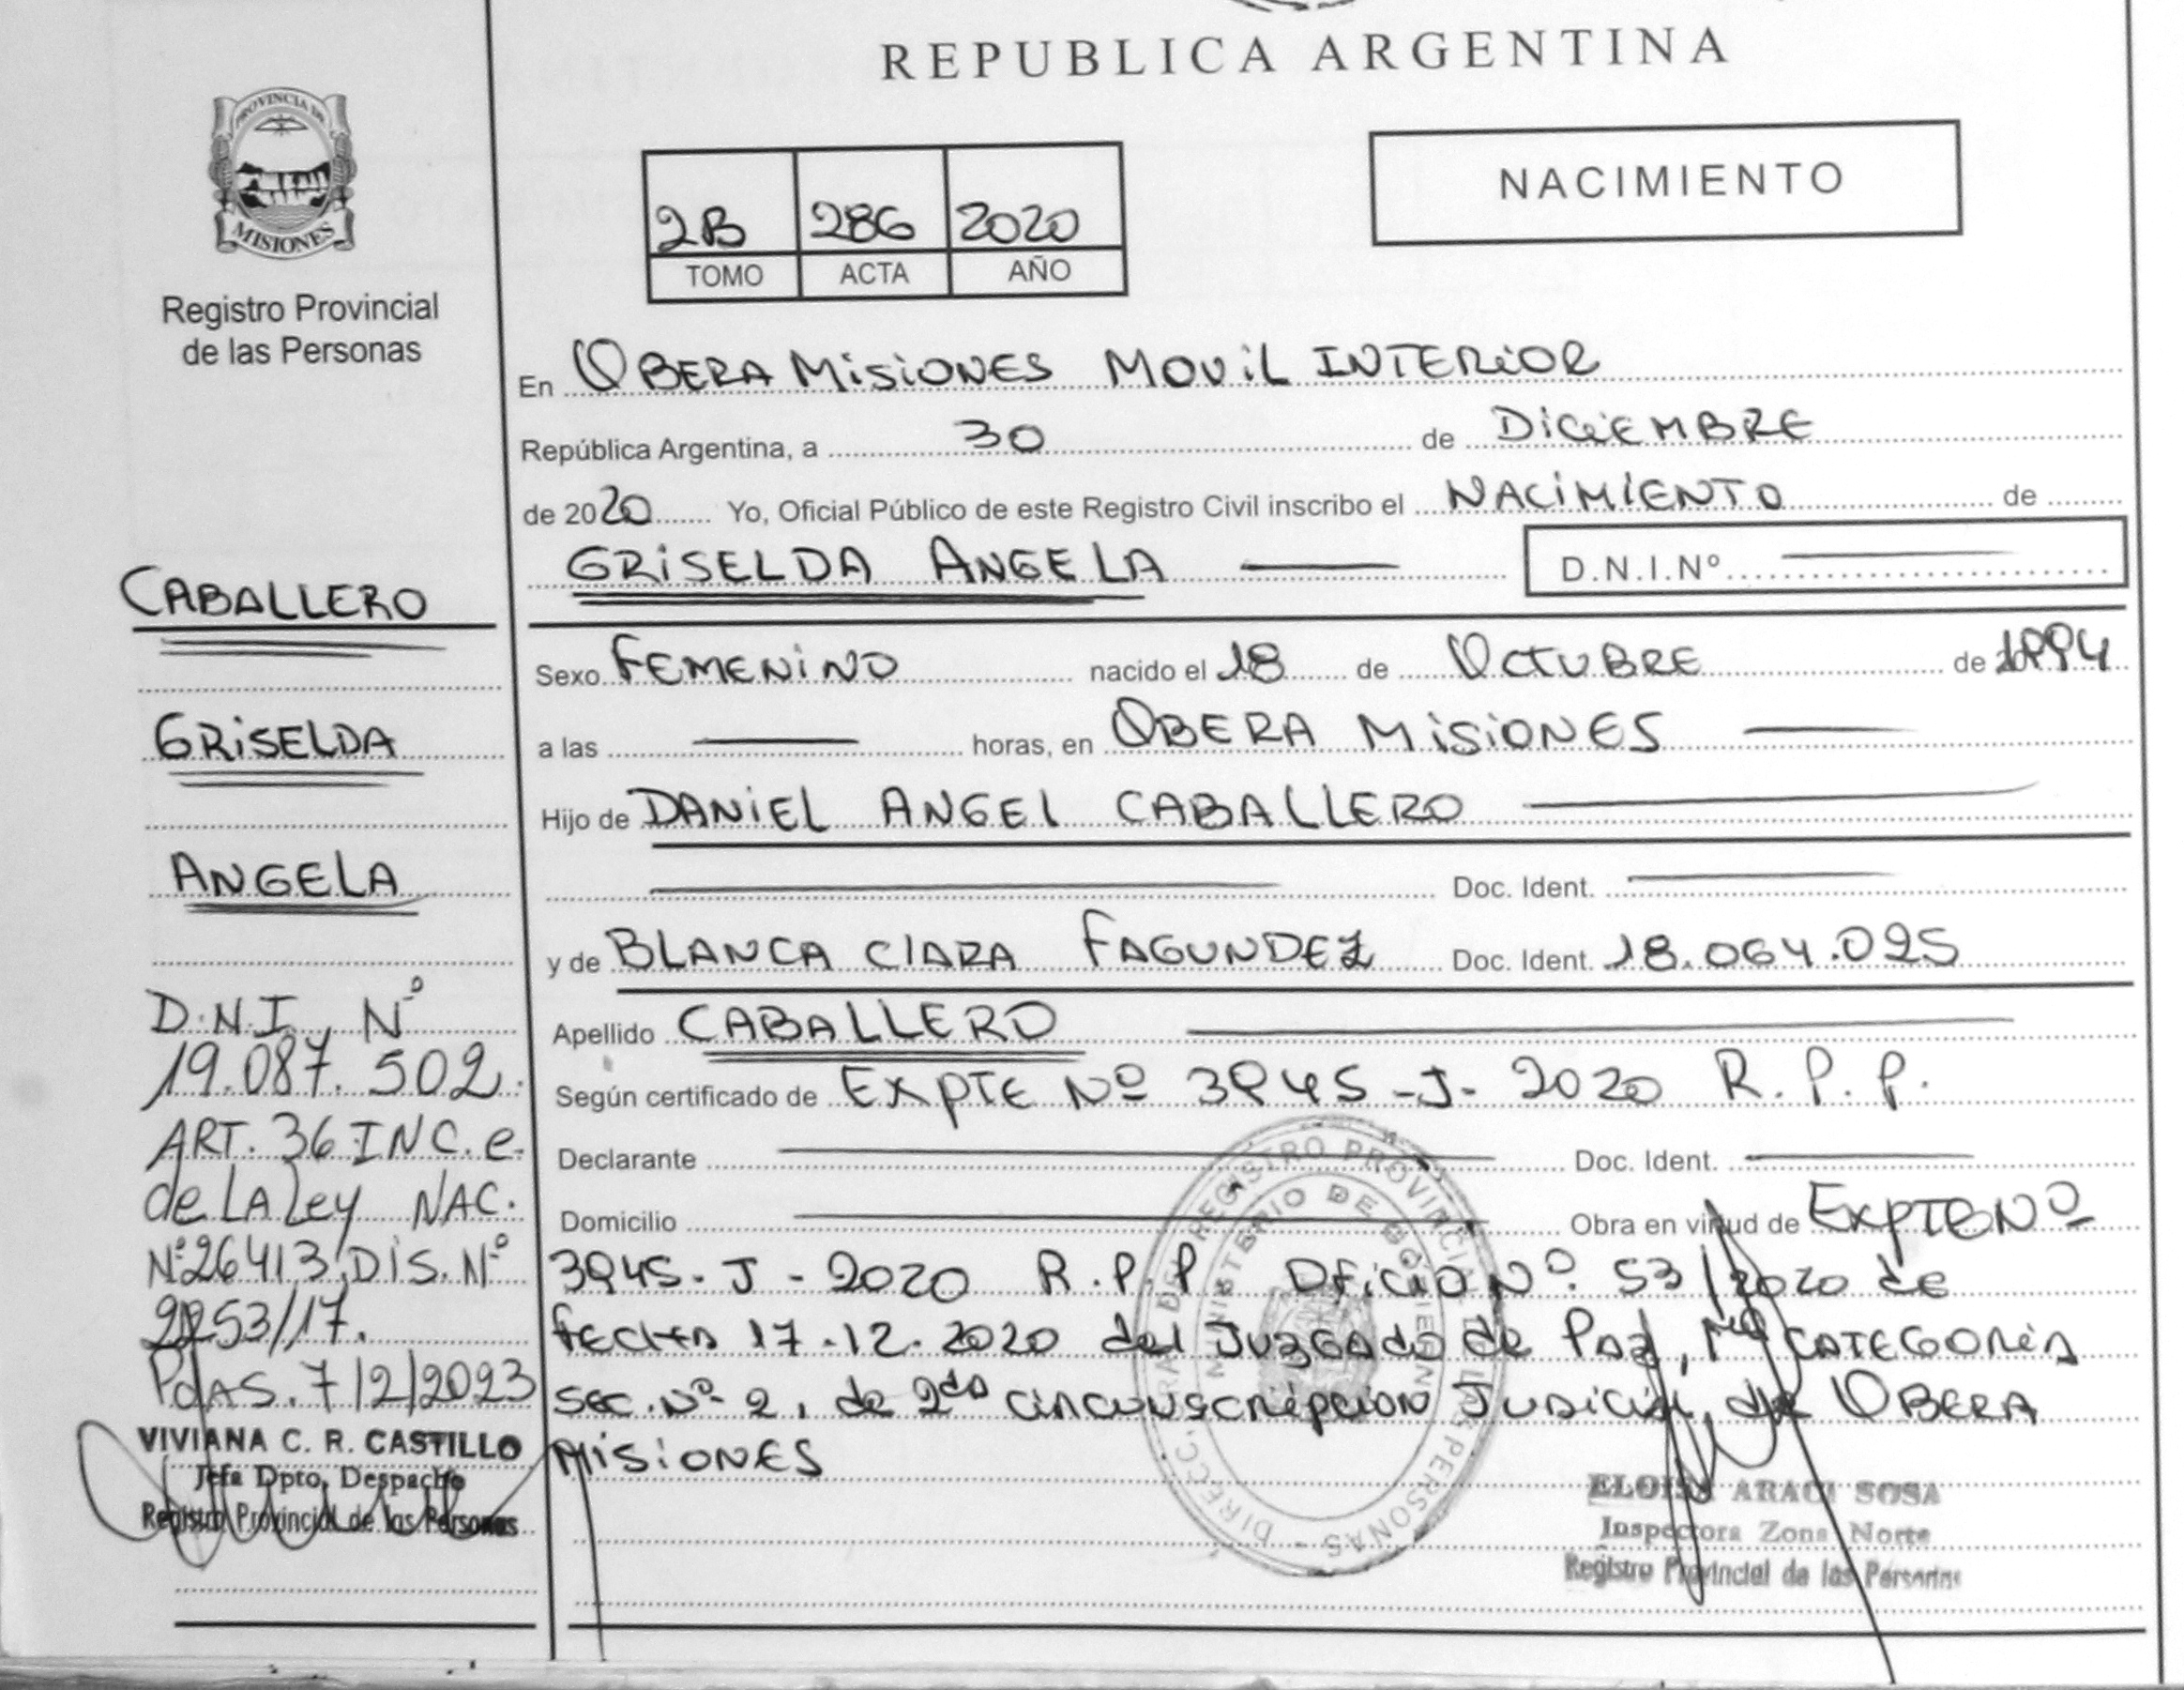 REPUBLICA ARGENTINA
PROVINCIA DE
MISIONES
Registro Provincial
de las Personas
NACIMIENTO
2B 286 2020
TOMO ACTA AÑO
En OBERA MISIONES MOVIL INTERIOR
República Argentina, a 30 de DICIEMBRE
de 2020 Yo, Oficial Público de este Registro Civil inscribo el NACIMIENTO de
GRISELDA ANGELA D.N.I.Nº
Sexo FEMENINO nacido el 18 de OCTUBRE de 1994
a las horas, en OBERA MISIONES
Hijo de DANIEL ANGEL CABALLERO
Doc. Ident.
y de BLANCA CLARA FAGUNDEZ Doc. Ident. 18.064.025
Apellido CABALLERO
Según certificado de EXPTE Nº 3945-J-2020 R.P.P.
Declarante Doc. Ident.
Domicilio Obra en virtud de EXPTE Nº
3945-J-2020 R.P.P Oficio Nº 53/2020 de
fecha 17.12.2020 del Juzgado de Paz, CATEGORIA
Sec. Nº 2, de 2da circunscripcion Judicial de OBERA
MISIONES
CABALLERO
GRISELDA
ANGELA
D.N.I. Nº
19.087.502
ART. 36 INC. e
de LA Ley NAC.
Nº 26413, DIS. Nº
2253/17.
PdAS. 7/2/2023
VIVIANA C. R. CASTILLO
Jefa Dpto. Despacho
Registro Provincial de las Personas
DIRECC. GRA DEL REGISTRO PROVINCIAL DE LAS PERSONAS
MINISTERIO DE GOBIERNO
ELOISA ARACI SOSA
Inspectora Zona Norte
Registro Provincial de las Personas